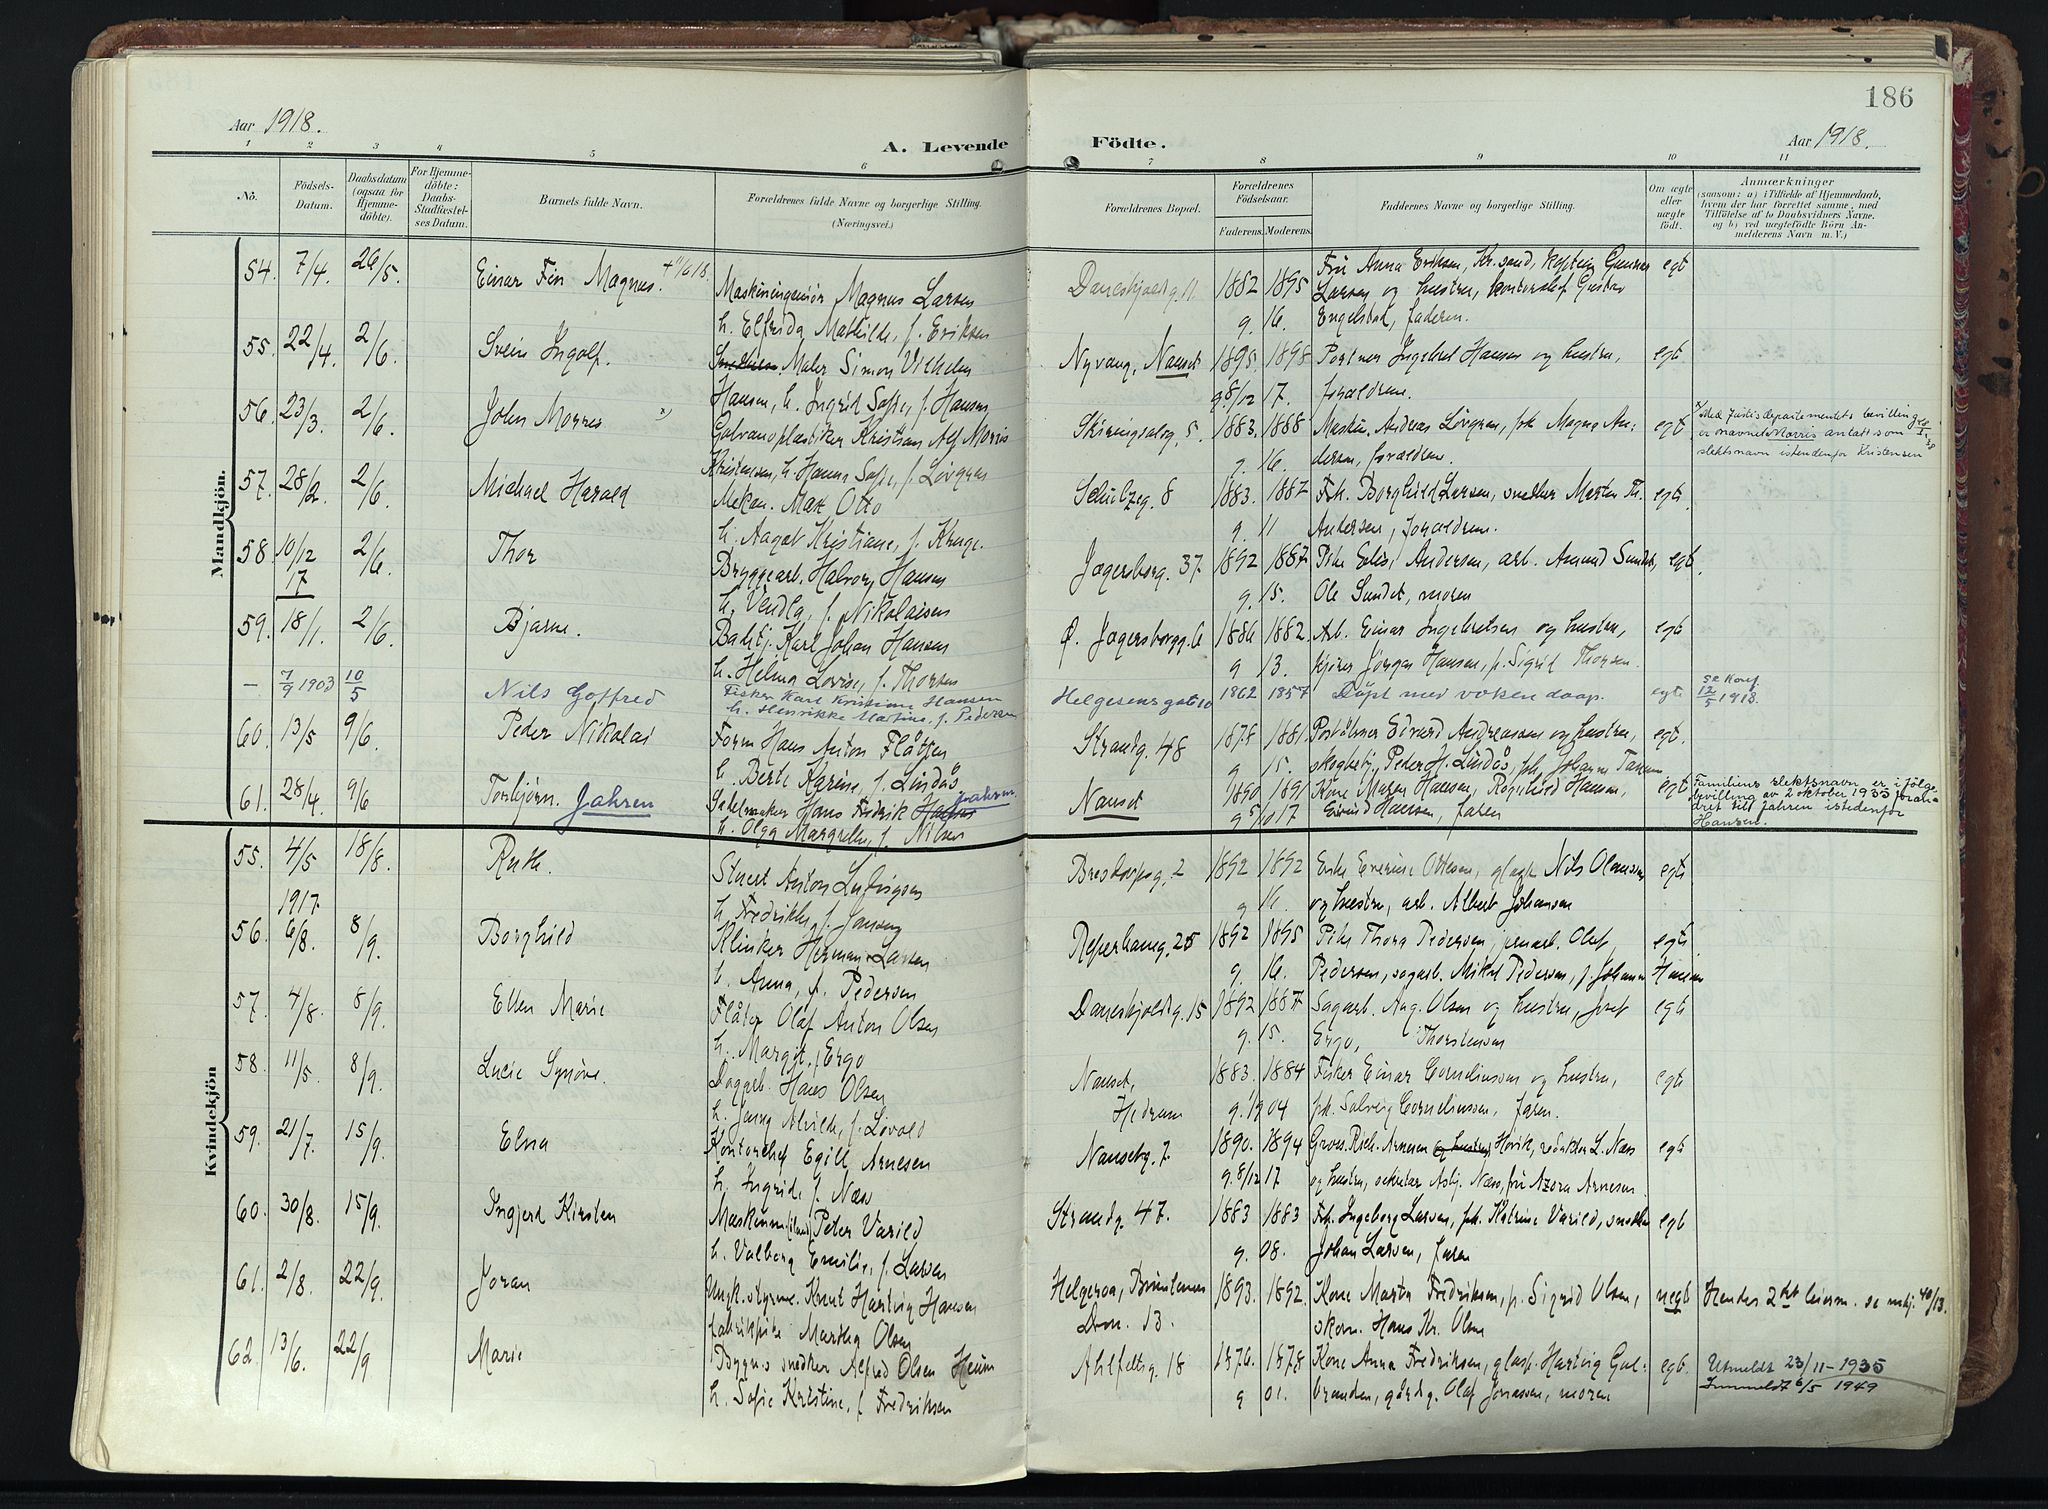 186
Aar 1918.
A. Levende
Födte.
Aar 1918.
1 2 3 4 5 6 7 8 9 10 11
No.
Födsels-Datum.
Daabsdatum (ogsaa for Hjemme-döbte).
For Hjemme-döbte: Daabs-Stadfæstel-ses Datum.
Barnets fulde Navn.
Forældrenes fulde Navne og borgerlige Stilling.
(Næringsvei.)
Forældrenes Bopæl.
Forældrenes Födselsaar.
Faderens. Moderens.
Faddernes Navne og borgerlige Stilling.
Om ægte eller uægte födt.
Anmærkninger
(saasom: a) i Tilfælde af Hjemmedaab,
hvem der har forrettet samme, med
Tilföielse af to Daabsvidners Navne.
og b) ved uægtefödte Börn An-
melderens Navn m. V.)
Mandkjön.
54. 7/4. 26/5. Einar Finn Magnus. Maskiningeniør Magnus Larsen Daneskjoldg. 11. 1882 1895 Fru Anna Eriksen, Kr.sand, kaptein Gunnar egt
h. Elfrida Mathilde, f. Eriksen g. 16. Larsen og hustru, kontorchef Gustav
Engelstad, faderen.
55. 22/4. 2/6. Svein Ingolf. Maler Simon Vilhelm Nyvang, Nanset 1895. 1898 Portner Ingebret Hansen og hustru, egt
Hansen, h. Ingrid Sofie, f. Hansen g. 8/12 17. forældrene.
56. 23/3. 2/6. John Morres x) Galvanoplastiker Kristian Alf Morris Skiringsalsg. 5. 1883. 1888 Maskin. Andreas Lövgren, frk Magna An- egt x Med Justisdepartementets bevilling
Kristensen, h. Hanna Sofie, f. Lövgren g. 16. dersen, forældrene. er navnet Morris antatt som
slektsnavn istedenfor Kristensen
57. 28/2. 2/6. Michael Harald Mekan. Max Otto Schultzeg. 8 1883. 1887 Frk. Borghild Larsen, snekker Morten Th. egt.
h. Aagot Kristiane, f. g. 11 Andersen, forældrene.
58 10/12 17 2/6. Thor Bryggearb. Halvor Hansen Jegersborg. 37. 1892 1887. Pike Elise Andersen, arb. Amund Sundet, egt.
h. Vendla, f. Nikolaisen g. 15. Ole Sundet, moren
59. 18/1. 2/6. Bjarne. Karl Johan Hansen Ø. Jegersborgg. 6 1886 1882. Arb. Einar Ingebretsen og hustru, egt
h. Helma Lovise, f. Thorsen g 13. Jörgen Hansen, p. Sigrid Thorsen.
— 7/9 1903 10/5 Nils Gotfred Fisker Karl Kristian Hansen Helgesensgate 10 1862 1857 Döpt med voksendaap. egte se Konf. 12/5 1918.
h. Henrikke Martine, f. Pedersen
60. 13/5 9/6. Peder Nikolai Form. Hans Anton Flåtten Strandg. 48 1878 1881. Edvard Andreassen og hustru, egt.
h. Berte Karine, f. Lindås g 15. skogbetj. Peder H. Lindås,
61. 28/4. 9/6 Torbjörn. Jahren Sadelmaker Hans Fredrik Hansen Jahren Nanset 1890 1891 Kone Maren Hansen, Ragnhild Hansen, egt Familiens slektsnavn er i følge
h. Olga Margrethe, f. Nilsen g 5/10 17 Hansen, faren bevilling av 2 oktober 1933 foran-
dret til Jahren istedenfor
Hansen.
Kvindekjön
55. 4/5 18/8. Ruth. Stuert Anton Ludvigsen Bredochsg. 2 1892 1892 Enke Everine Ottesen, Nils Olaussen egte
1917. h. Fredrikke, f. Jensen g 16. og hustru, arb. Albert Johansen
56. 6/8. 8/9. Borghild Klinker Herman Larsen Reperbaneg. 25 1892 1895 Pike Thora Pedersen, Olaf egte
h. Anna, f. Pedersen g. 16. Pedersen, sagarb. Mikal Pedersen, f. Johanne Hansen
57. 4/8. 8/9. Ellen Marie Flåter Olaf Anton Olsen Daneskjoldg. 15 1892 1887 Sagarb. Aug. Olsen og hustru, Josef egte
h. Margit, f. Ergo g. 15. Ergo, Thorstensen
58. 11/5. 8/9. Lucie Synöve. Dagarb. Hans Olsen Nanset, 1883. 1884 Fisker Einar Corneliussen og hustru, egte
h. Jenny Alvilde, f. Lövold Hedrum g. 1904 frk. Solveig Corneliussen, faren.
59. 21/7. 15/9. Elna Kontorchef Egill Arnesen Nansetg. 7 1890. 1894 Gross. Rich. Arnesen og hustru, Hövik, redaktör L. Næss egt
h. Ingrid, f. Næss g. 8/12 17 og hustru, sekretær Asbj. Næss, fru Azora Arnesen.
60. 30/8. 15/9. Ingjerd Kirsten Maskinm. Peter Varild Strandg. 47. 1883 1883 Frk. Ingeborg Larsen, frk. Katrine Varild, snekker egt
h. Valborg Emilie, f. Larsen g. 08. Johan Larsen, faren
61. 2/8. 22/9. Joran Ungk. styrm. Knut Hartvig Hansen Helgeroa, Brunlanes 1893. 1892. Kone Marta Fredriksen, p. Sigrid Olsen, uegt Hendes 2det leierm. se
fabrikpike Martha Olsen Dron. 13. skom. Hans Kr. Olsen
62. 13/6. 22/9 Marie Bygn.snedker Alfred Olsen Heum Ahlfeltsg. 18 1876. 1878 Kone Anna Fredriksen, glasp. Hartvig Gul- egt. Utmeldt 23/11–1935
h. Sofie Kristine, f Fredriksen g 01. branden, gårdg. Olaf Jonassen, moren Innmeldt 6/5 1949